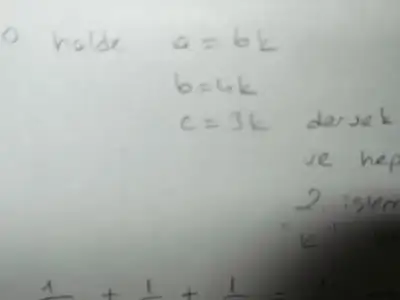 O halde a = 6k
b = 4k
c = 3k dersek
ve hep
2 işlem
k
1 + 1 + 1